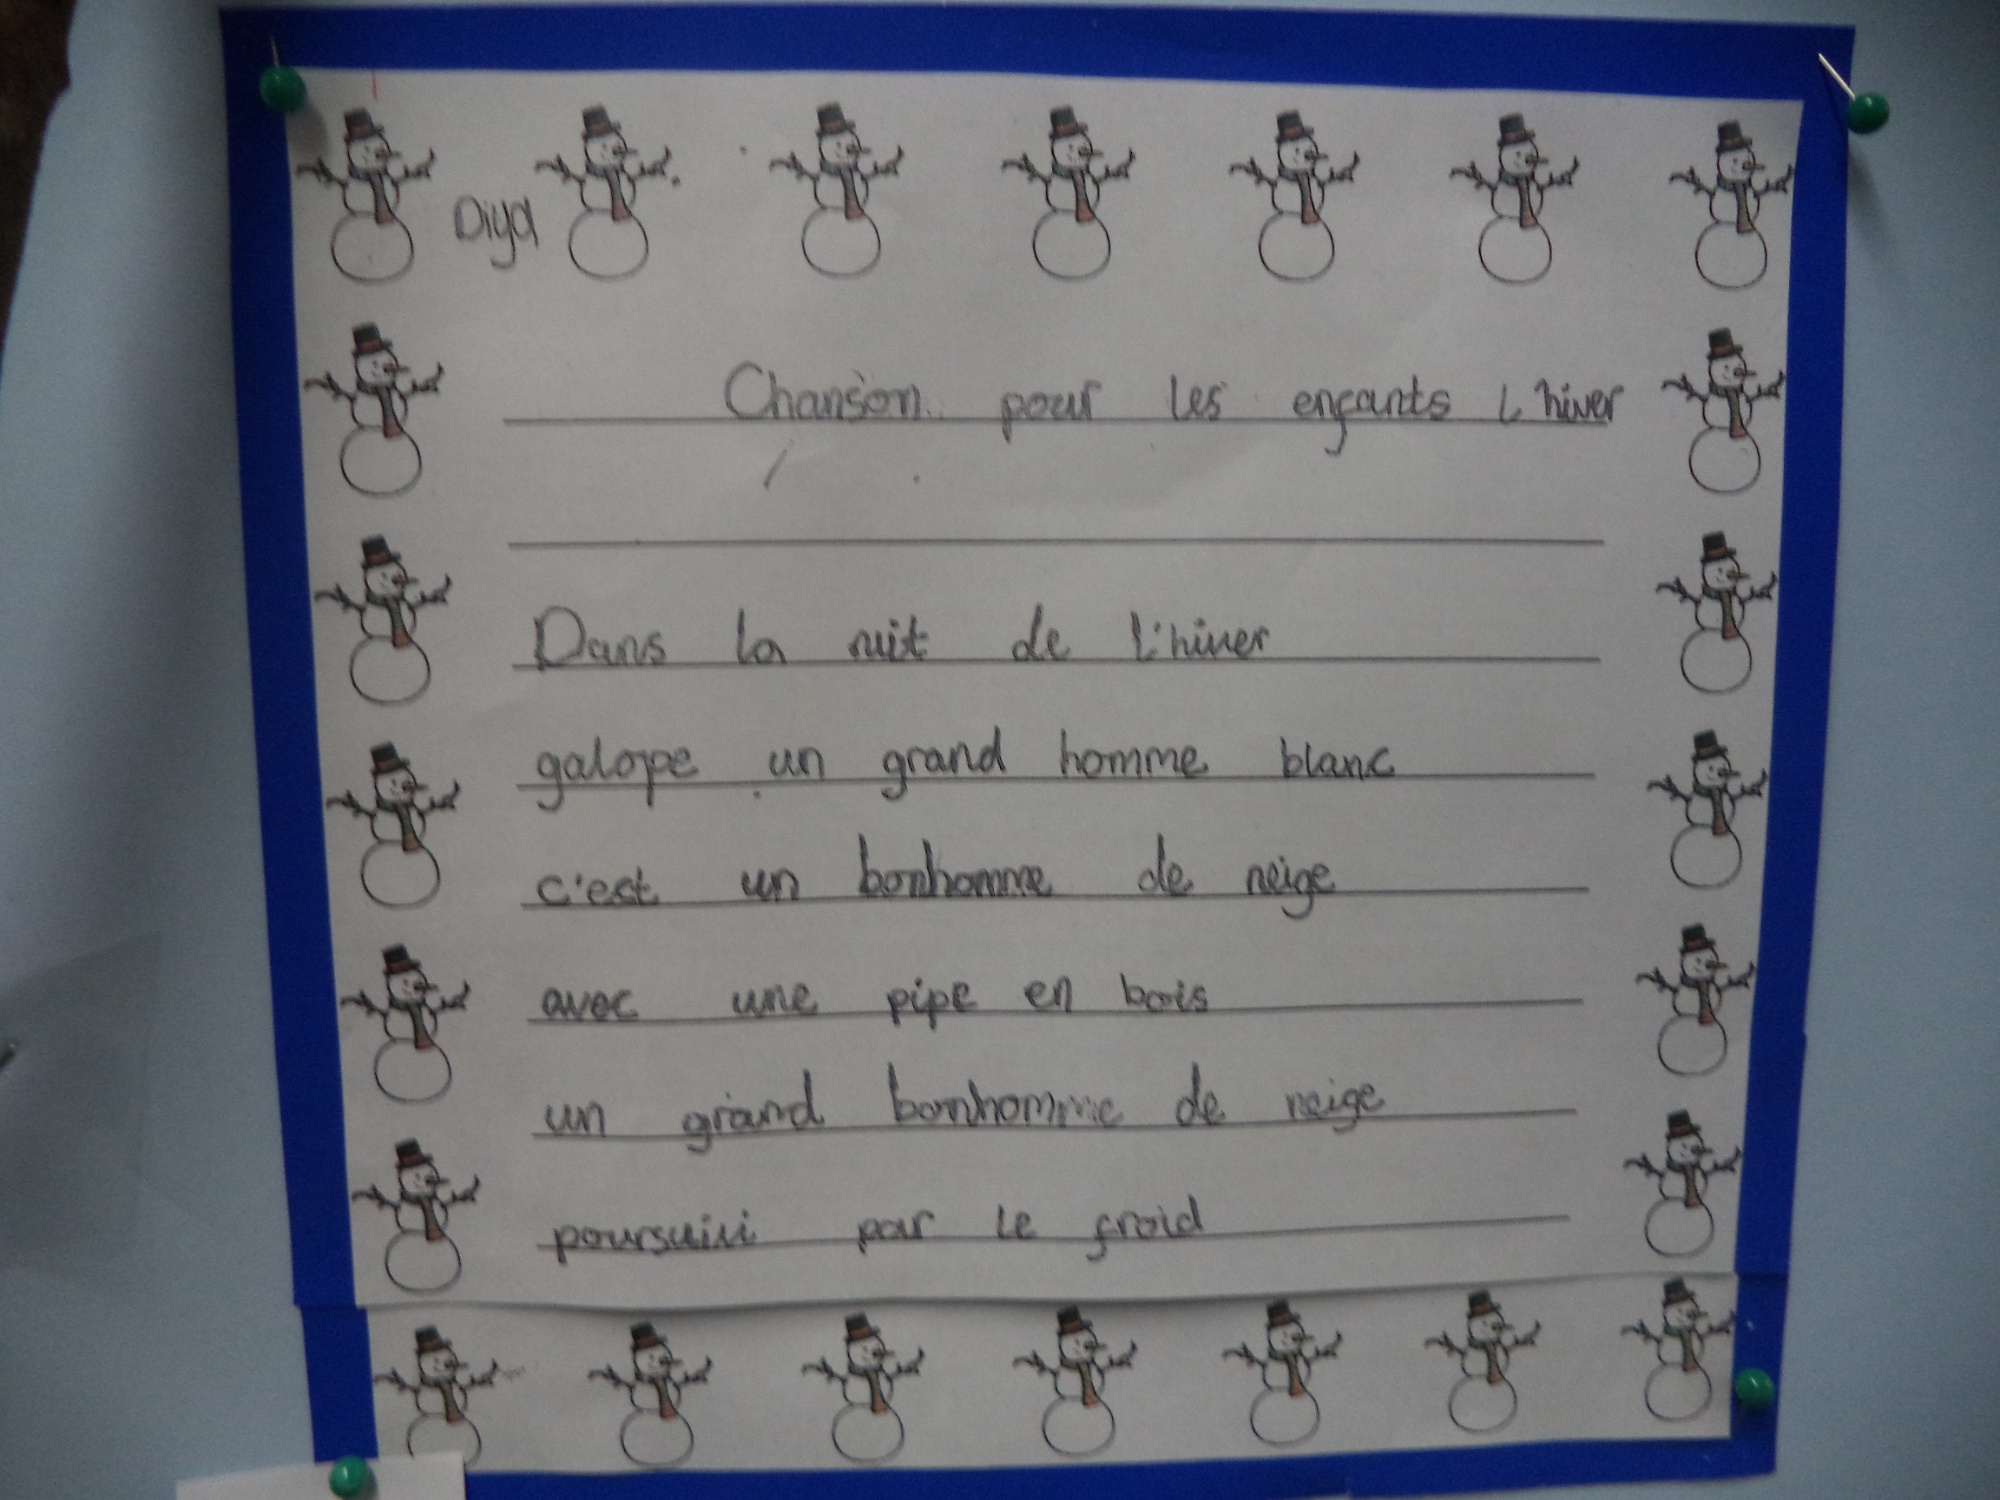 Diya
Chanson pour les enfants L'hiver
Dans la nuit de l'hiver
galope un grand homme blanc
c'est un bonhomme de neige
avec une pipe en bois
un grand bonhomme de neige
poursuivi par le froid